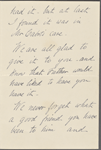 had it. But at last
I found it was in
Mr Gain's care.
We are all glad to
give it to you and
know that Father would
have liked to have you
have it.
We never forget what
a good friend you have
been to him and